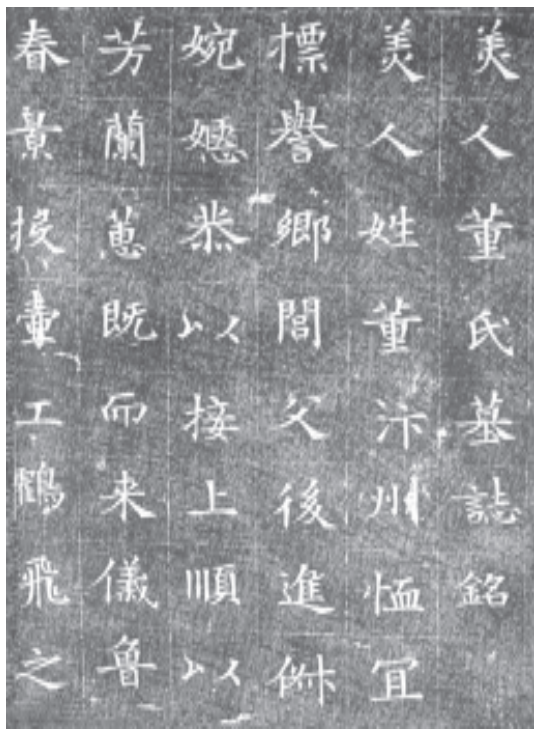 美人董氏墓誌銘
美人姓董汴州恤宜
摽譽鄉閭父後進俶
婉嫕恭以接上順以
芳蘭蕙既而来儀魯
春景投壺工鶴飛之